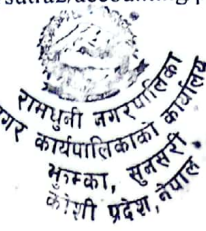 रामधुनी नगरपालिका
नगर कार्यपालिकाको कार्यालय
झुम्का, सुनसरी
कोशी प्रदेश, नेपाल